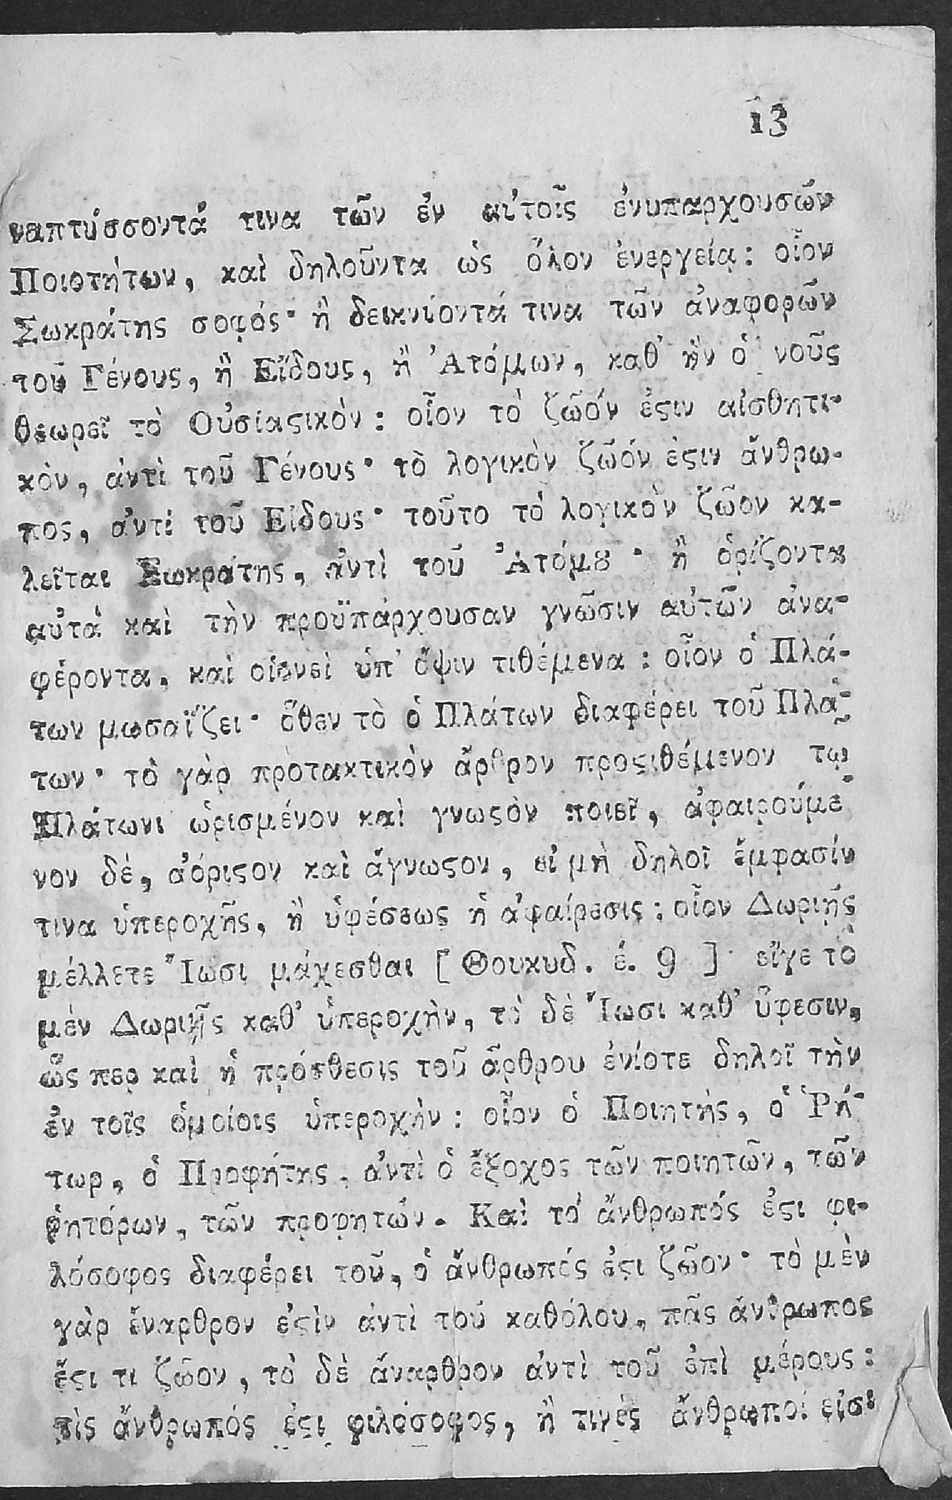 13
ναπτύσσοντά τινα τῶν ἐν αὐτοῖς ἐνυπαρχουσῶν
Ποιοτήτων, καὶ δηλοῦντα ὡς ὅλον ἐνεργείᾳ: οἷον
Σωκράτης σοφός· ἢ δεικνύοντά τινα τῶν ἀναφορῶν
τοῦ Γένους, ἢ Εἴδους, ἢ Ἀτόμων, καθ' ἣν ὁ νοῦς
θεωρεῖ τὸ Οὐσίαςικὸν: οἷον τὸ ζῶόν ἐςιν αἰσθητι-
κὸν, ἀντὶ τοῦ Γένους· τὸ λογικὸν ζῶόν ἐςιν ἄνθρω-
πος, ἀντὶ τοῦ Εἴδους· τοῦτο τὸ λογικὸν ζῶον κα-
λεῖται Σωκράτης, ἀντὶ τοῦ Ἀτόμȣ· ἢ ὁρίζοντα
αὐτὰ καὶ τὴν προϋπάρχουσαν γνῶσιν αὐτῶν ἀνα-
φέροντα, καὶ οἱονεὶ ὑπ' ὄψιν τιθέμενα: οἷον ὁ Πλά-
των μωσαΐζει· ὅθεν τὸ ὁ Πλάτων διαφέρει τοῦ Πλά-
των· τὸ γὰρ προτακτικὸν ἄρθρον προςιθέμενον τῳ
Πλάτωνι ὡρισμένον καὶ γνωςὸν ποιεῖ, ἀφαιρούμε
νον δὲ, ἀόριςον καὶ ἄγνωςον, εἰ μὴ δηλοῖ ἔμφασίν
τινα ὑπεροχῆς, ἢ ὑφέσεως ἡ ἀφαίρεσις: οἷον Δωριῆς
μέλλετε Ἴωσι μάχεσθαι [ Θουκυδ. έ. 9 ] εἴγε τὸ
μὲν Δωριῆς καθ' ὑπεροχὴν, τὸ δὲ Ἴωσι καθ' ὕφεσιν,
ὥς περ καὶ ἡ πρόσθεσις τοῦ ἄρθρου ἐνίοτε δηλοῖ τὴν
ἐν τοῖς ὁμοίοις ὑπεροχὴν: οἷον ὁ Ποιητὴς, ὁ Ῥή-
τωρ, ὁ Προφήτης, ἀντὶ ὁ ἔξοχος τῶν ποιητῶν, τῶν
ῥητόρων, τῶν προφητῶν. Καὶ τὸ ἄνθρωπός ἐςι φι-
λόσοφος διαφέρει τοῦ, ὁ ἄνθρωπός ἐςι ζῶον· τὸ μὲν
γὰρ ἔναρθρον ἐςὶν ἀντὶ τοῦ καθόλου, πᾶς ἄνθρωπος
ἔςι τι ζῶον, τὸ δὲ ἄναρθρον ἀντὶ τοῦ ἐπὶ μέρους:
τὶς ἄνθρωπός ἐςι φιλόσοφος, ἢ τινὲς ἄνθρωποί εἰσι